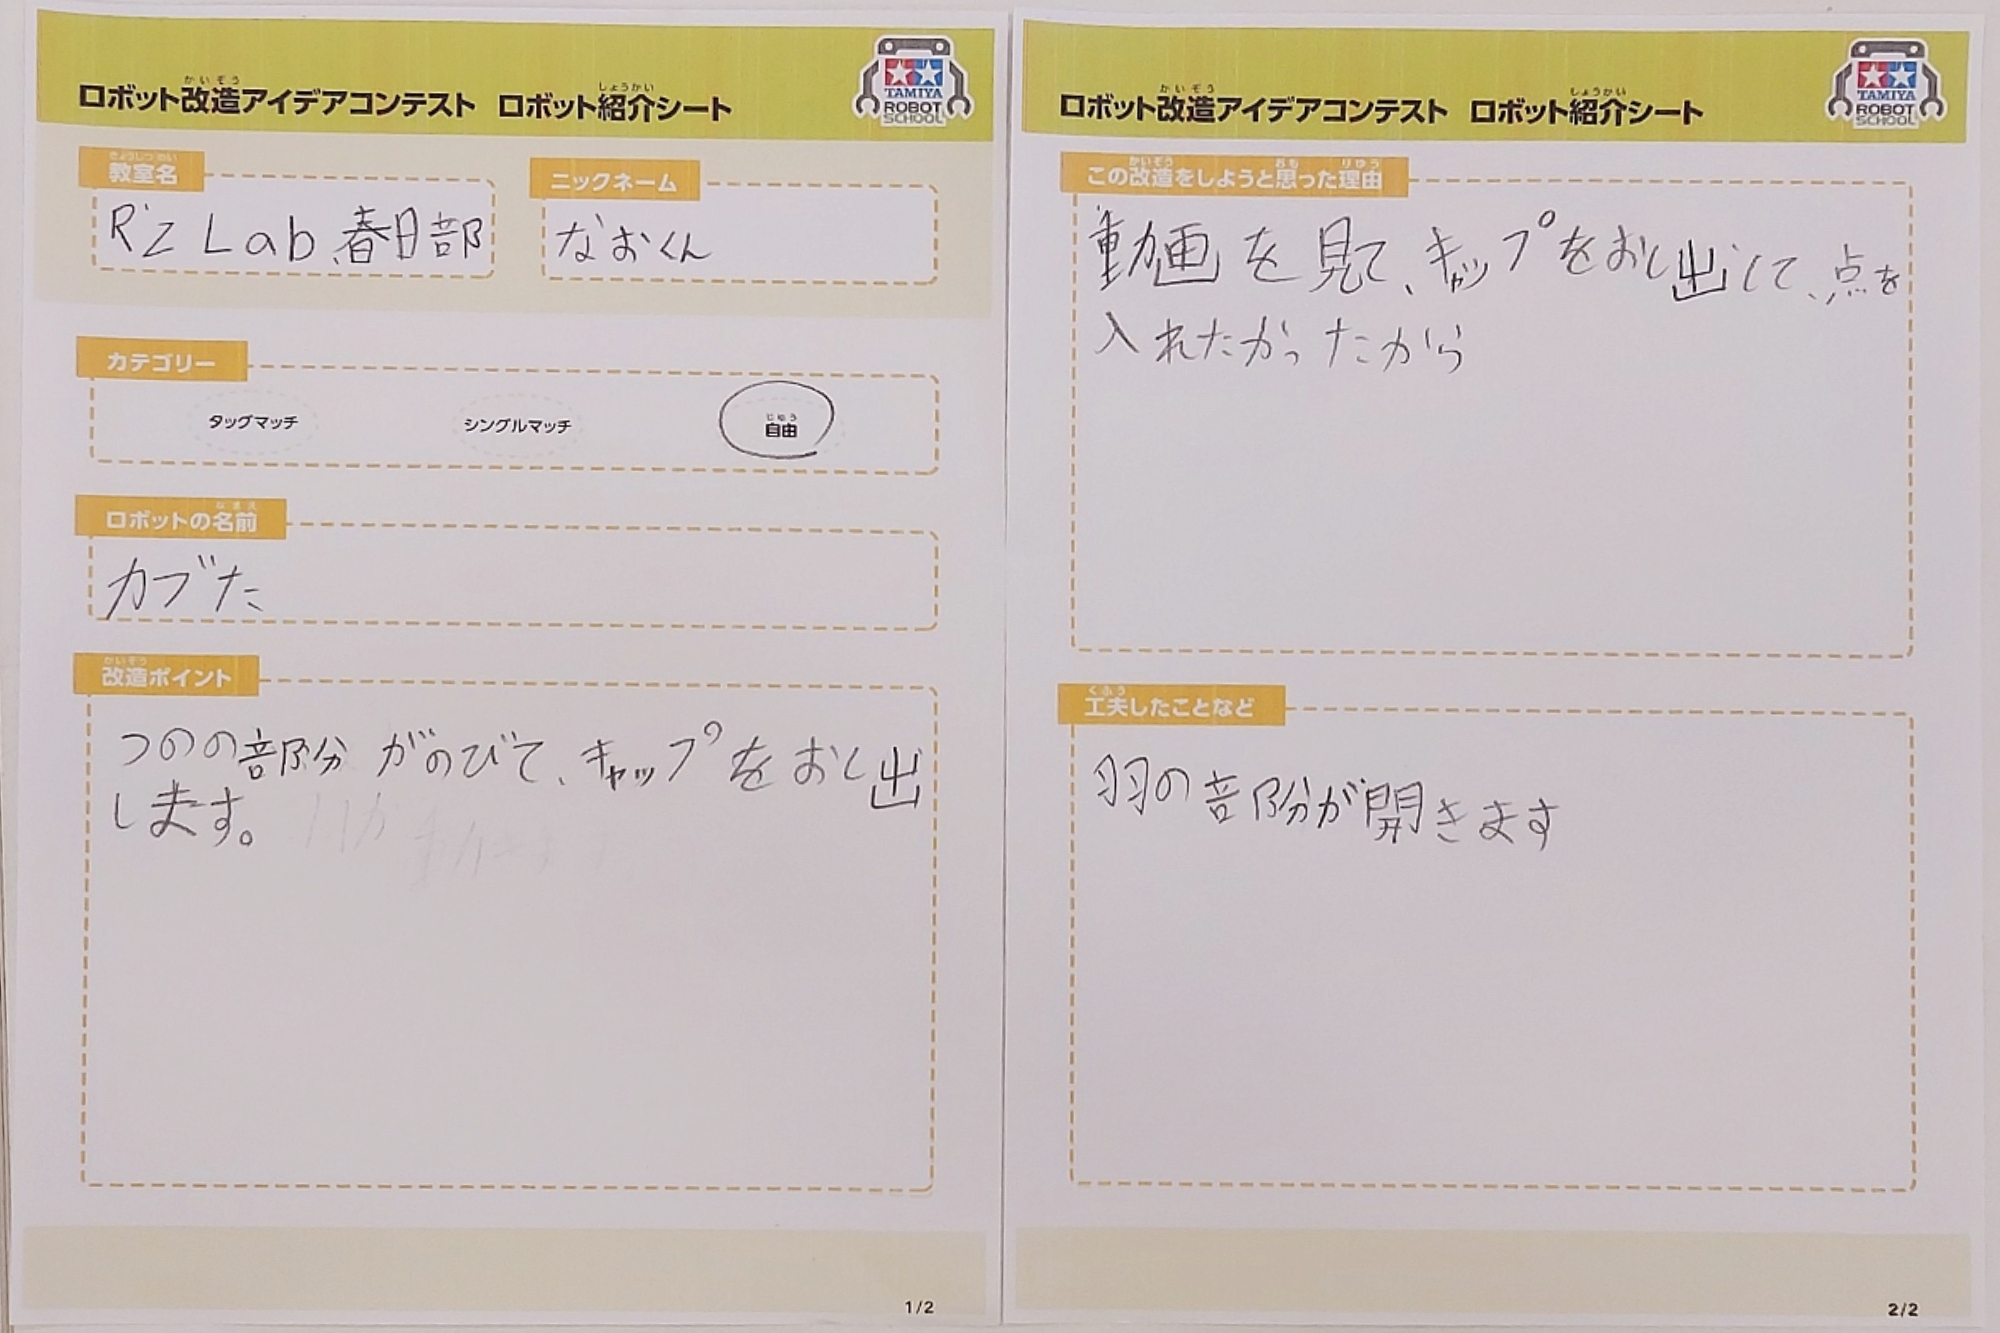 かいぞう しょうかい
ロボット改造アイデアコンテスト ロボット紹介シート
TAMIYA
ROBOT
SCHOOL
きょうしつ めい
教室名
R'z Lab 春日部
ニックネーム
なおくん
カテゴリー
タッグマッチ
シングルマッチ
じゆう
自由
なまえ
ロボットの名前
カブた
かいぞう
改造ポイント
つのの部分がのびて、キャップをおし出
します。
1/2
かいぞう しょうかい
ロボット改造アイデアコンテスト ロボット紹介シート
TAMIYA
ROBOT
SCHOOL
かいぞう おも りゆう
この改造をしようと思った理由
動画を見て、キャップをおし出して、点を
入れたかったから
くふう
工夫したことなど
羽の部分が開きます
2/2